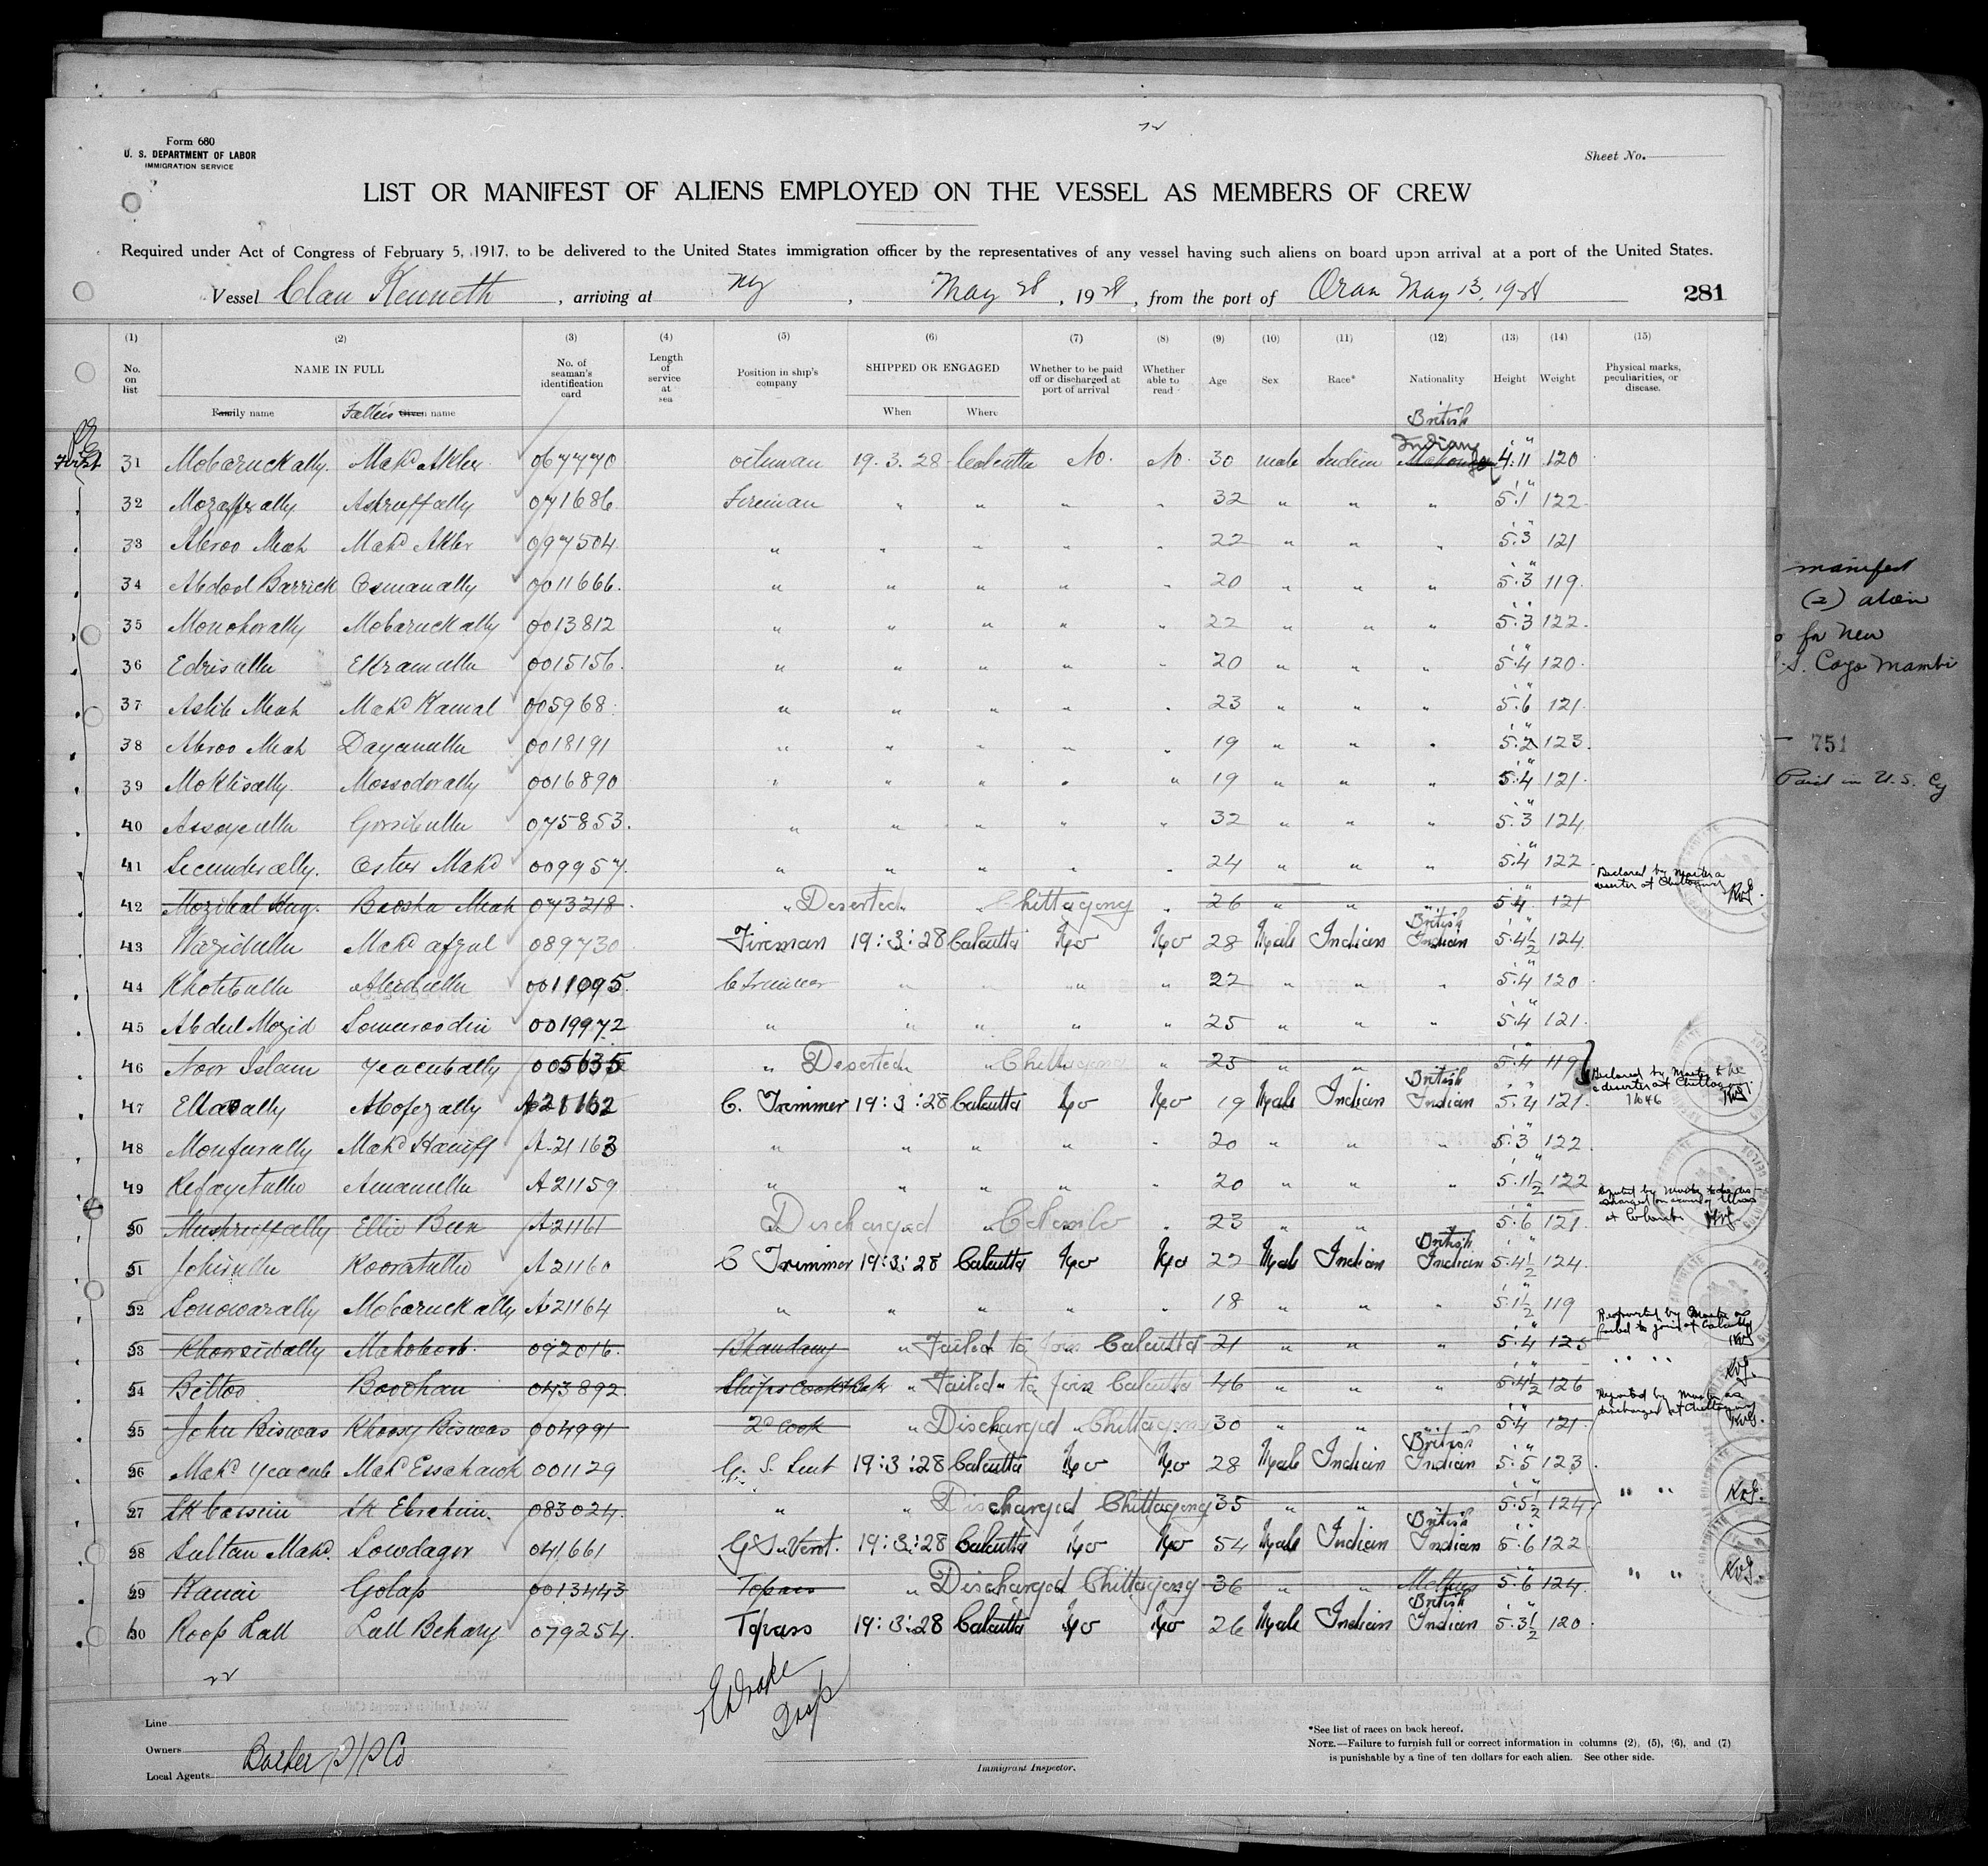 Form 680
U. S. DEPARTMENT OF LABOR
IMMIGRATION SERVICE
Sheet No.
LIST OR MANIFEST OF ALIENS EMPLOYED ON THE VESSEL AS MEMBERS OF CREW
Required under Act of Congress of February 5, 1917, to be delivered to the United States immigration officer by the representatives of any vessel having such aliens on board upon arrival at a port of the United States.
Vessel Clan Kenneth, arriving at NY, May 28, 1928, from the port of Oran May 13, 1928 281
(1) (2) (3) (4) (5) (6) (7) (8) (9) (10) (11) (12) (13) (14) (15)
No. on list NAME IN FULL No. of seaman's identification card Length of service at sea Position in ship's company SHIPPED OR ENGAGED Whether to be paid off or discharged at port of arrival Whether able to read Age Sex Race* Nationality Height Weight Physical marks, peculiarities, or disease.
Family name Father's Given name When Where
British
First 31 Mobaruckally. Mahd Akler 067770 19.3.28 Calcutta No. No. 30 male Indian Indian 4.11 120
32 Mozafferally Ashruffally 071686 Fireman " " " " 32 " " " 5.1 122
33 Abroo Meah Mahd Akler 097504 " " " " " 22 " " " 5.3 121
34 Abdool Barrick Osmanally 0011666. " " " " " 20 " " " 5.3 119.
35 Monohorally Mobaruckally 0013812 " " " " " 22 " " " 5.3 122.
36 Edrisulla Ekramulla 0015156. " " " " " 20 " " " 5.4 120.
37 Meah Mahd Kamal 005968 " " " " " 23 " " " 5.6 121.
38 Abroo Meah Dayanulla 0018191 " " " " " 19 " " " 5.2 123.
39 Moklisally. Mossodorally 0016890 " " " " " 19 " " " 5.4 121.
40 075853. " " " " " 32 " " " 5.3 124.
41 Secunderally. Mahd 009957. " " " " " 24 " " " 5.4 122
42 Mozibal Huq. Boosha Meah 073218 " Deserted " Chittagong " 26 " " " 5.4 121 Declared by Master a deserter at Chittagong
43 Wazidulla Mahd afzul 089730 Fireman 19:3:28 Calcutta No No 28 Male Indian British Indian 5.4½ 124.
44 Khotibulla Abedulla 0011095. C Trimmer " " " " 22 " " " 5.4 120
45 Abdul Mozid Somuroodin 0019972 " " " " " 25 " " " 5.4 121
46 Noor Islam Yeacubally 005635 " Deserted " Chittagong " 25 " " 5.4 119 Declared by Master to be a deserter at Chittagong
47 Abofezally A21162 C. Trimmer 19:3:28 Calcutta No No 19 Male Indian British Indian 5.4 121.
48 Monfurally Mahd Haniff A.21163 " " " " " 20 " " " 5.3 122.
49 Refayetulla Amanulla A21159 " " " " " 20 " " " 5.1½ 122
50 Mushruffally Ellie Bux A21161 Discharged " Colombo " 23 " " 5.6 121. at Colombo
51 A21160 C Trimmer 19:3:28 Calcutta No No 22 Male Indian British Indian 5.4½ 124.
52 Sonowarally Mobaruckally A21164 " " " " " 18 " " " 5.1½ 119
53 Khorsidally 092016. Bhandary " Failed to join Calcutta 21 " " " 5.4 125 Reported by Master as failed to join at Calcutta
54 Bittoo Boodhan 043892 Ships Cook & Bak " Failed to join Calcutta 46 " " " 5.4½ 126 " "
25 John Biswas Khoosy Biswas 004991 2d Cook " Discharged " Chittagong 30 " " " 5.4 121. Reported by Master as discharged at Chittagong
26 Mahd Yeacub Mahd Essahawk 001129 G. S. Sert 19:3:28 Calcutta No No 28 Male Indian British Indian 5.5 123.
27 Sk Cassim Sk Ebrahim. 083024. " " Discharged Chittagong 35 " " 5.5½ 124 " "
28 Sultan Mahd. Sowdagor 041661 19:3:28 Calcutta No No 54 Male Indian British Indian 5.6 122.
29 Kanai Golap 0013443 Topass " Discharged Chittagong 36 " " 5.6 124. " "
30 Roop Lall Lall Behary 079254. Topass 19:3:28 Calcutta No No 26 Male Indian British Indian 5.3½ 120
Line
Owners
Local Agents Barber S/S Co
Insp
Immigrant Inspector.
*See list of races on back hereof.
NOTE.—Failure to furnish full or correct information in columns (2), (5), (6), and (7) is punishable by a fine of ten dollars for each alien. See other side.
manifest
(2) alien
for New
S. Cayo Mambi
751
Paid in U.S. Cy